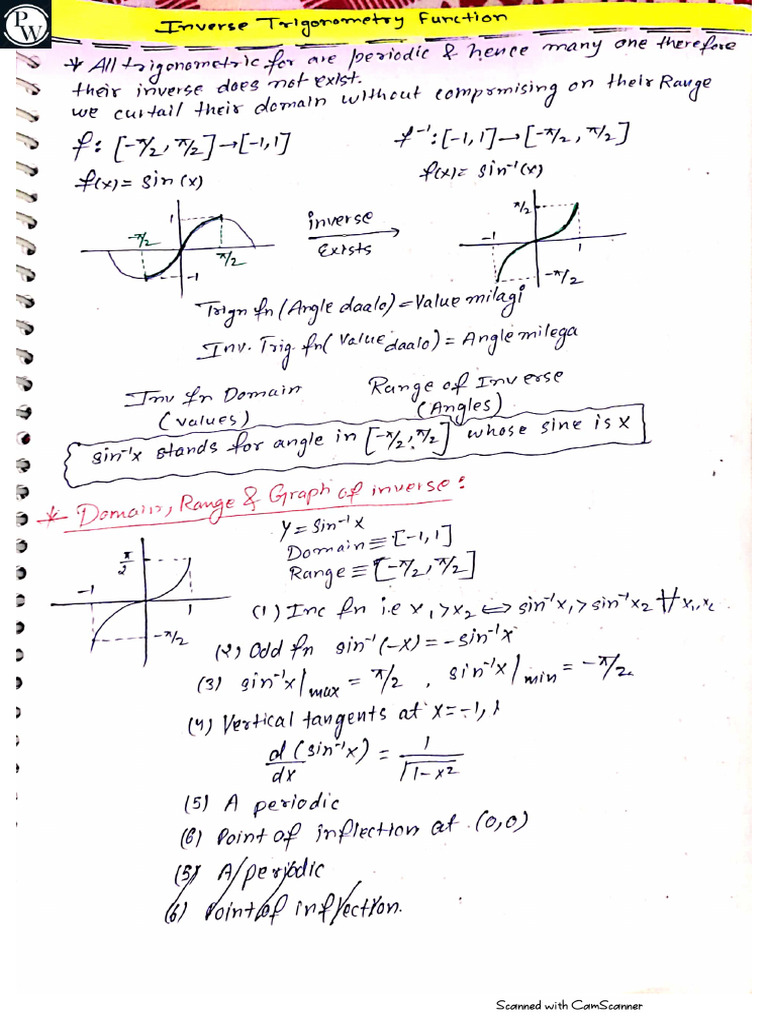 PW
Inverse Trigonometry Function
* All trigonometric fnr are periodic & hence many one therefore
their inverse does not exist.
we curtail their domain without compromising on their Range
f: [-π/2, π/2] → [-1,1]    f⁻¹: [-1,1] → [-π/2, π/2]
f(x) = sin(x)    f(x) = sin⁻¹(x)
1    -π/2    π/2    -1
inverse
Exists
π/2    -1    1    -π/2
Trign fn (Angle daalo) = Value milagi
Inv. Trig. fn( Value daalo) = Angle milega
Inv fn Domain    Range of Inverse
(values)    (Angles)
sin⁻¹x stands for angle in [-π/2, π/2] whose sine is x
* Domain, Range & Graph of inverse:
π/2    -1    1    -π/2
y = sin⁻¹x
Domain ≡ [-1,1]
Range ≡ [-π/2, π/2]
(1) Inc fn i.e x₁ > x₂ ⇔ sin⁻¹x₁ > sin⁻¹x₂ ∀ x₁, x₂
(2) Odd fn sin⁻¹(-x) = -sin⁻¹x
(3) sin⁻¹x|max = π/2 , sin⁻¹x|min = -π/2.
(4) Vertical tangents at x = -1, 1
d/dx (sin⁻¹x) = 1/√(1-x²)
(5) A periodic
(6) Point of inflection at (0,0)
(5) A periodic
(6) Point of inflection.
Scanned with CamScanner